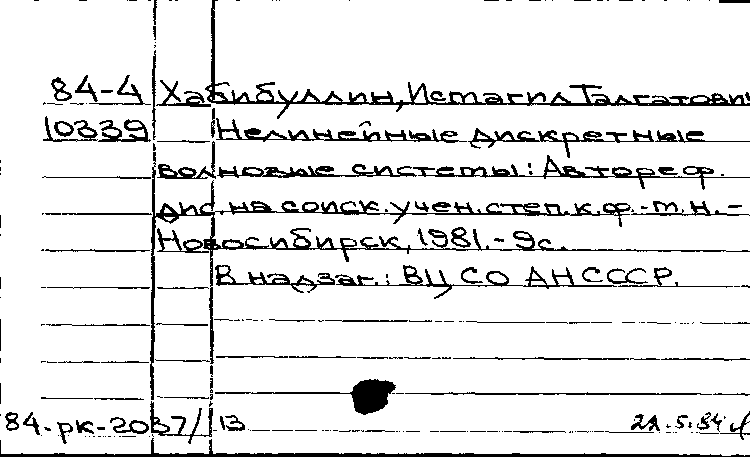 84-4 Хабибуллин, Исмагил Талгатович
10339 Нелинейные дискретные
волновые системы: Автореф.
дис. на соиск. учен. степ. к. ф.-м. н. -
Новосибирск, 1981. - 9с.
В надзаг.: ВЦ СО АН СССР.
84-рк-2037/13